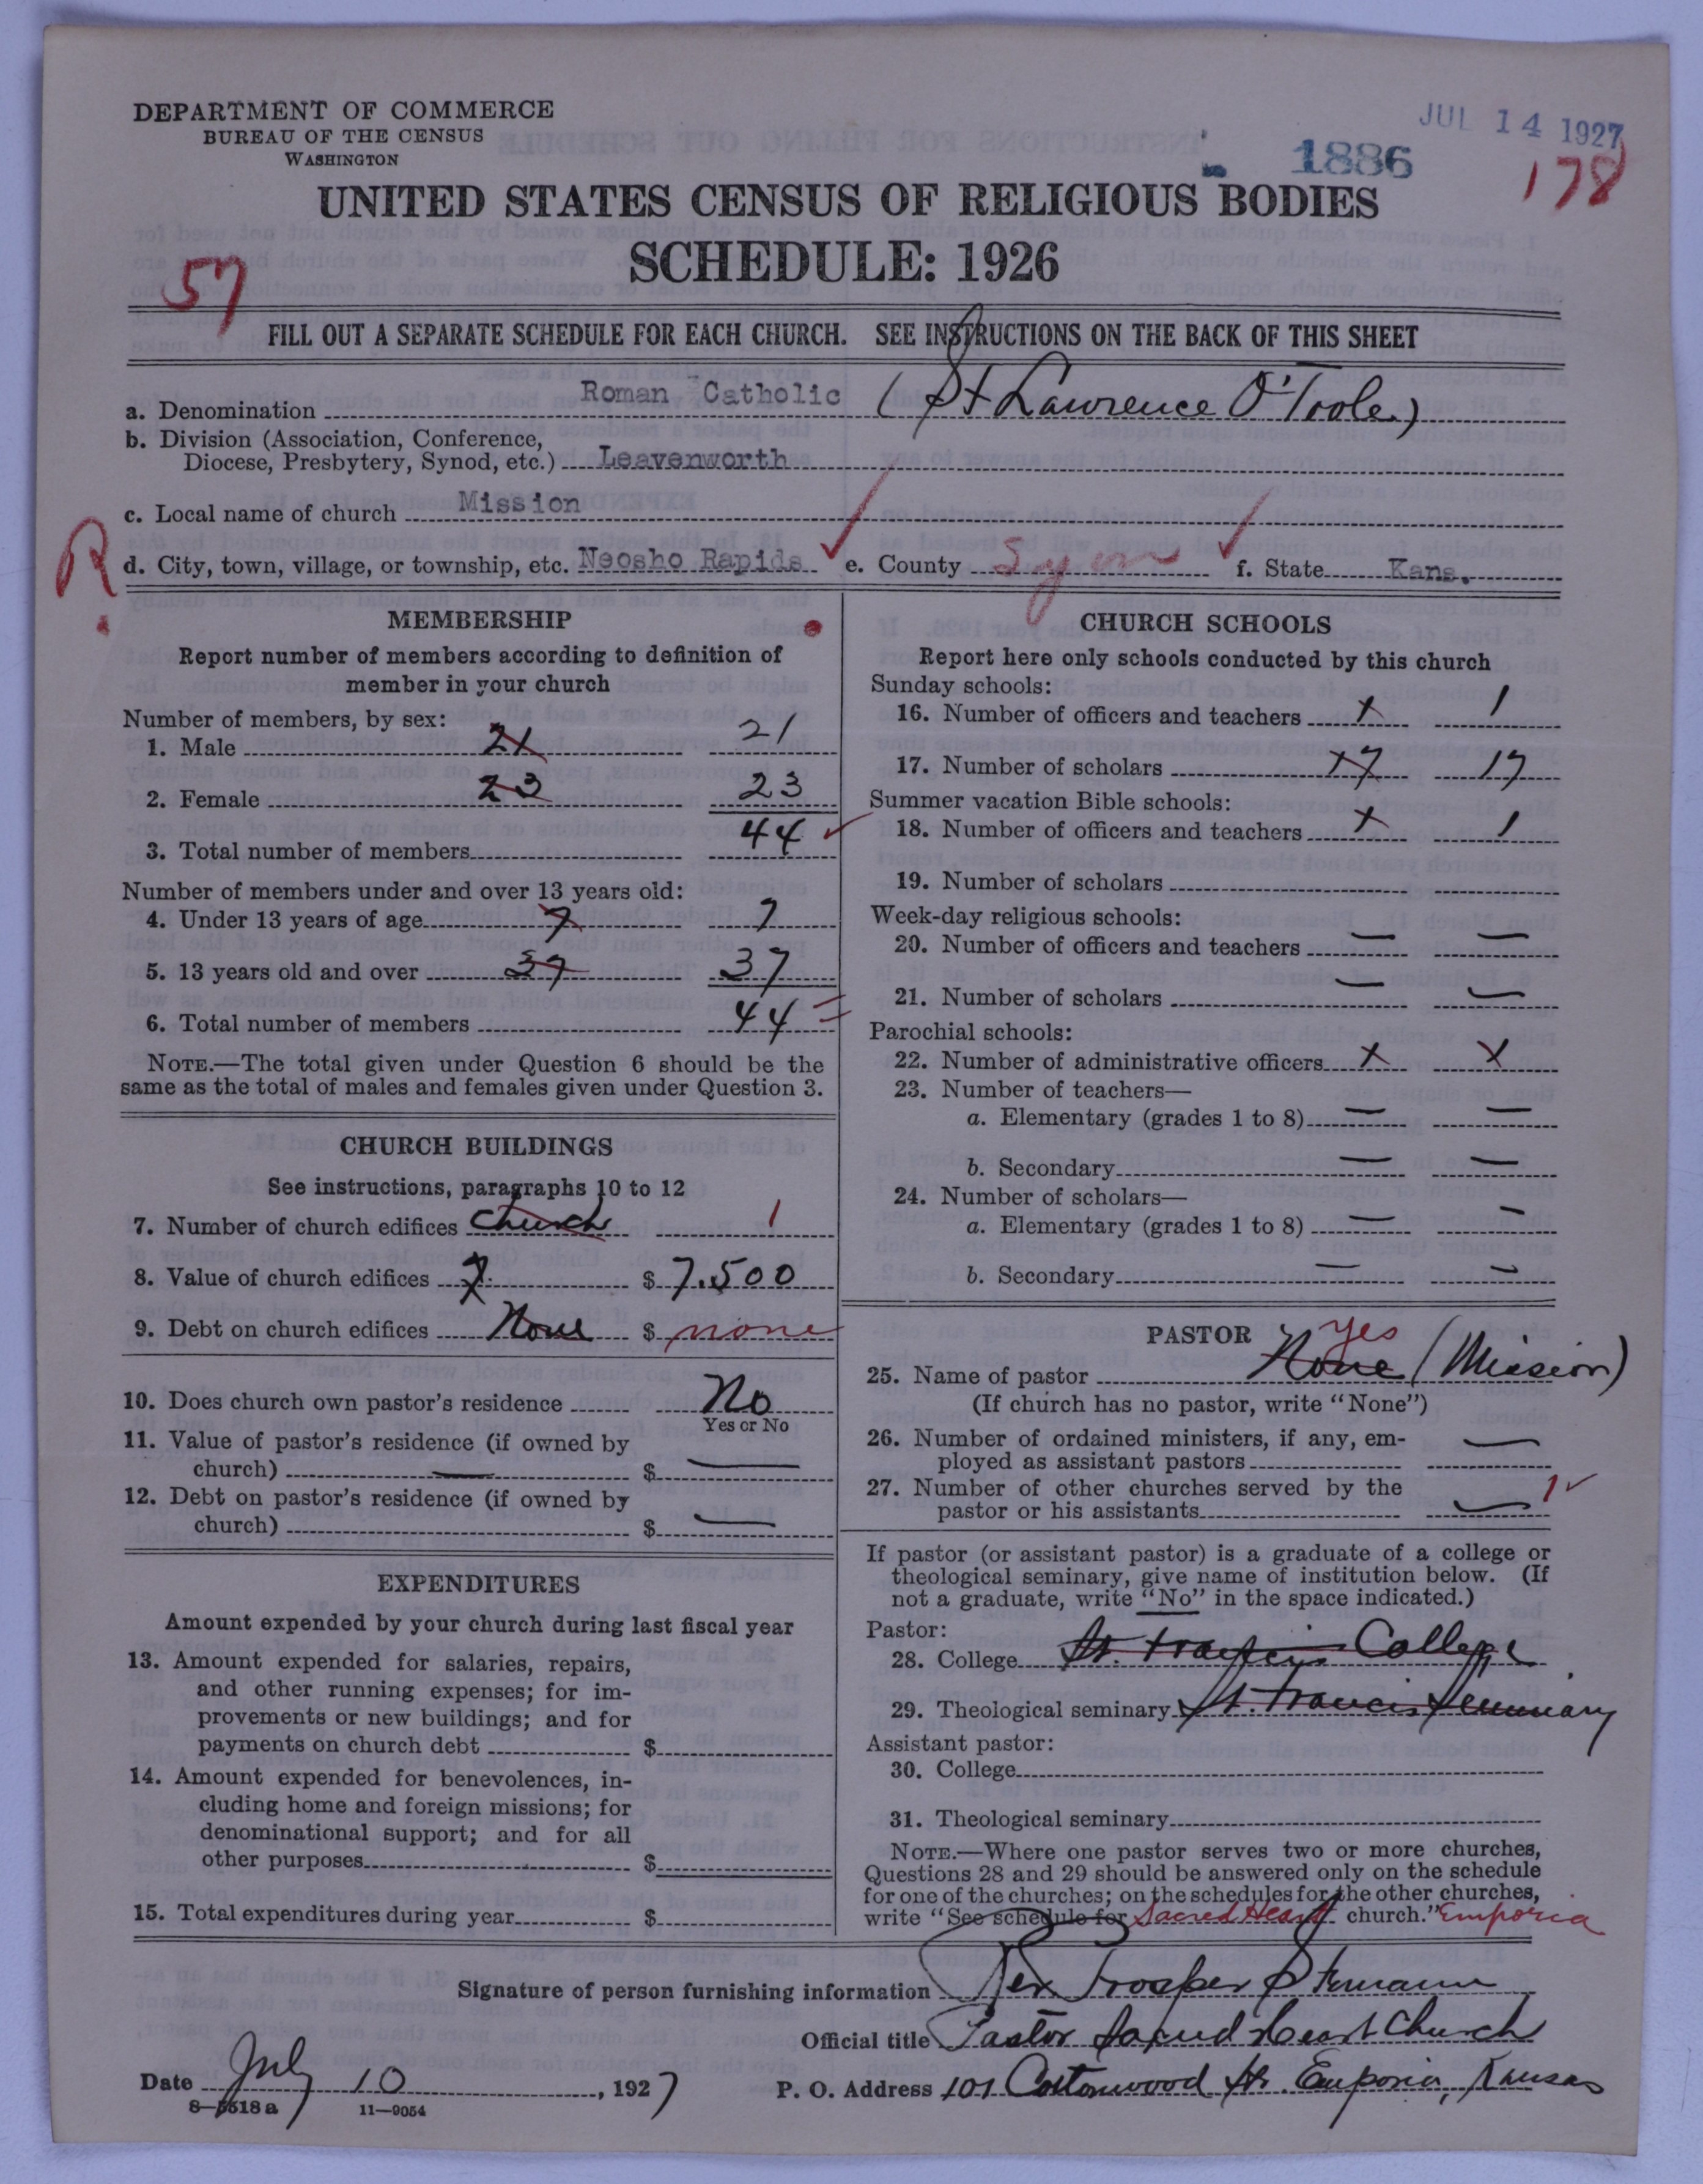 DEPARTMENT OF COMMERCE
BUREAU OF THE CENSUS
WASHINGTON
JUL 14 1927
1886
178
UNITED STATES CENSUS OF RELIGIOUS BODIES
SCHEDULE: 1926
57
FILL OUT A SEPARATE SCHEDULE FOR EACH CHURCH. SEE INSTRUCTIONS ON THE BACK OF THIS SHEET
a. Denomination Roman Catholic (St Lawrence O'Toole)
b. Division (Association, Conference,
Diocese, Presbytery, Synod, etc.) Leavenworth
c. Local name of church Mission
R.
d. City, town, village, or township, etc. Neosho Rapids e. County Lyon f. State Kans.
MEMBERSHIP
Report number of members according to definition of
member in your church
Number of members, by sex:
1. Male 21 21
2. Female 23 23
3. Total number of members 44
Number of members under and over 13 years old:
4. Under 13 years of age 7 7
5. 13 years old and over 37 37
6. Total number of members 44
NOTE.—The total given under Question 6 should be the
same as the total of males and females given under Question 3.
CHURCH BUILDINGS
See instructions, paragraphs 10 to 12
7. Number of church edifices church 1
8. Value of church edifices 7 $ 7.500
9. Debt on church edifices None $ none
10. Does church own pastor's residence No
Yes or No
11. Value of pastor's residence (if owned by
church) — $ —
12. Debt on pastor's residence (if owned by
church) $ —
EXPENDITURES
Amount expended by your church during last fiscal year
13. Amount expended for salaries, repairs,
and other running expenses; for im-
provements or new buildings; and for
payments on church debt $
14. Amount expended for benevolences, in-
cluding home and foreign missions; for
denominational support; and for all
other purposes $
15. Total expenditures during year $
CHURCH SCHOOLS
Report here only schools conducted by this church
Sunday schools:
16. Number of officers and teachers 1 1
17. Number of scholars 17 17
Summer vacation Bible schools:
18. Number of officers and teachers 1 1
19. Number of scholars
Week-day religious schools:
20. Number of officers and teachers — —
21. Number of scholars — —
Parochial schools:
22. Number of administrative officers X X
23. Number of teachers—
a. Elementary (grades 1 to 8) — —
b. Secondary — —
24. Number of scholars—
a. Elementary (grades 1 to 8) — —
b. Secondary — —
PASTOR
yes
25. Name of pastor None (Mission)
(If church has no pastor, write "None")
26. Number of ordained ministers, if any, em-
ployed as assistant pastors —
27. Number of other churches served by the
pastor or his assistants — 1
If pastor (or assistant pastor) is a graduate of a college or
theological seminary, give name of institution below. (If
not a graduate, write "No" in the space indicated.)
Pastor:
28. College St. Francis College
29. Theological seminary St. Francis Seminary
Assistant pastor:
30. College
31. Theological seminary
NOTE.—Where one pastor serves two or more churches,
Questions 28 and 29 should be answered only on the schedule
for one of the churches; on the schedules for the other churches,
write "See schedule for Sacred Heart church." Emporia
Signature of person furnishing information Rev Prosper
Official title Pastor Sacred Heart Church
Date July 10, 1927
P. O. Address 101 Cottonwood St. Emporia, Kansas
8—5518 a 11—9054